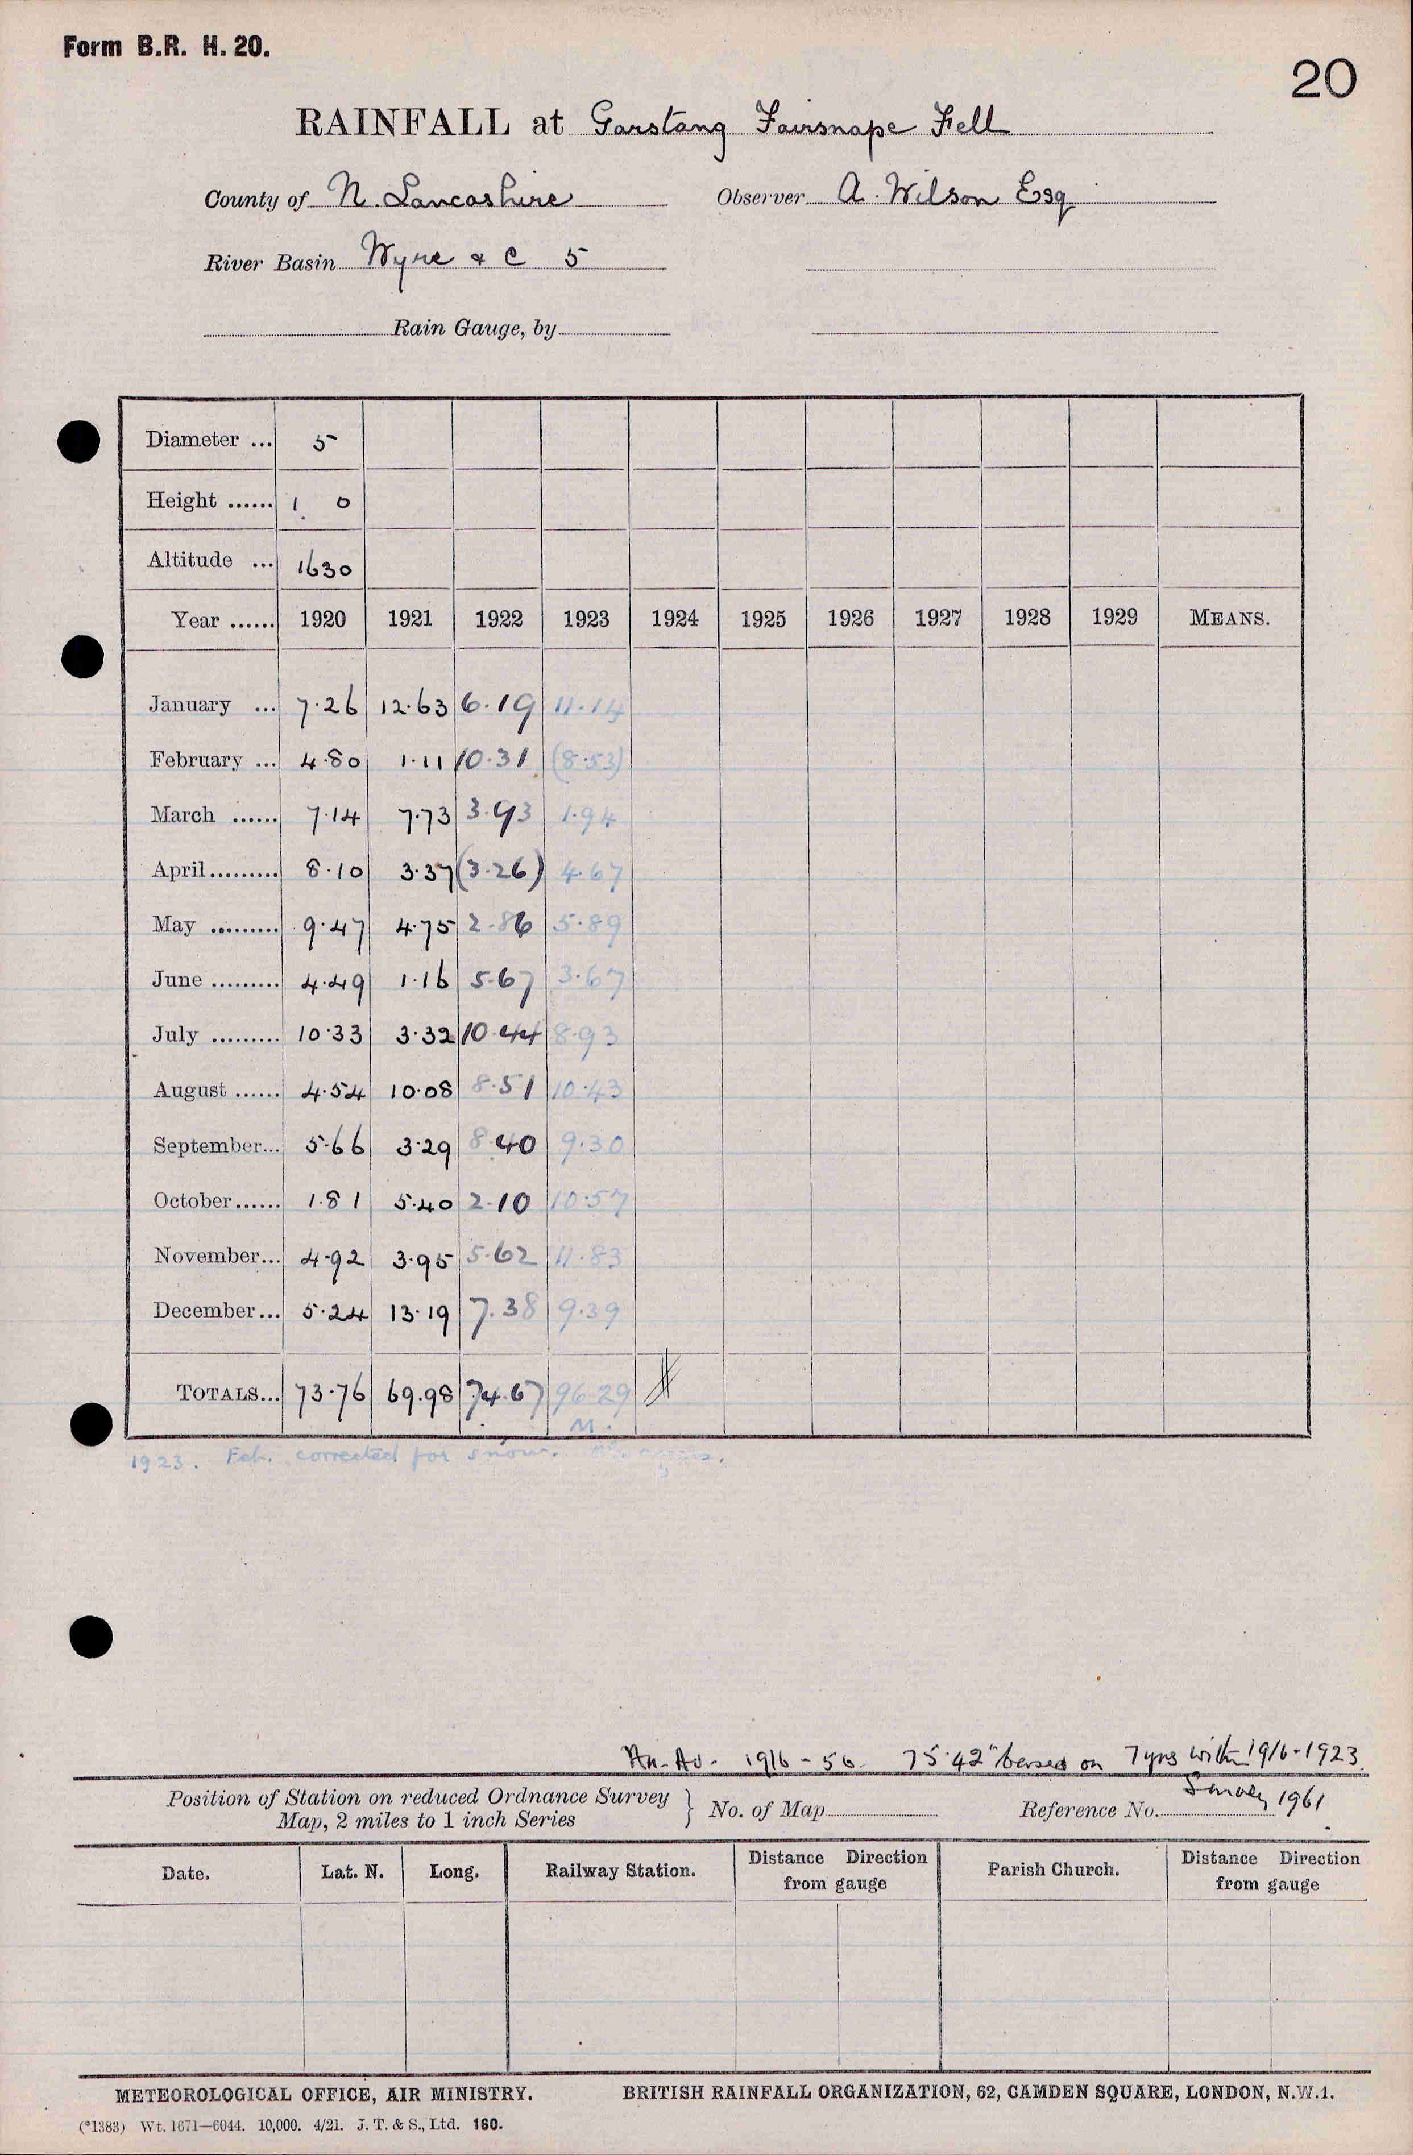 Form B.R. H. 20.
20
RAINFALL at Garstang Fairsnape Fell
County of N. Lancashire Observer A. Wilson Esq
River Basin Wyre & C 5
Rain Gauge, by
Diameter ... 5
Height ...... 1 0
Altitude ... 1630
Year ...... 1920 1921 1922 1923 1924 1925 1926 1927 1928 1929 MEANS.
January ... 7.26 12.63 6.19 11.14
February ... 4.80 1.11 10.31 (8.53)
March ...... 7.14 7.73 3.93 1.94
April......... 8.10 3.37 (3.26) 4.67
May ......... 9.47 4.75 2.86 5.89
June ......... 4.49 1.16 5.67 3.67
July ......... 10.33 3.32 10.44 8.93
August ...... 4.54 10.08 8.51 10.43
September... 5.66 3.29 8.40 9.30
October...... 1.81 5.40 2.10 10.57
November... 4.92 3.95 5.62 11.83
December... 5.24 13.19 7.38 9.39
TOTALS... 73.76 69.98 74.67 96.29
M.
1923. Feb. corrected for snow.
An. Av. 1916-50 75.42" based on 7 yrs within 1916-1923.
Position of Station on reduced Ordnance Survey Map, 2 miles to 1 inch Series } No. of Map Reference No. 1961
Date. Lat. N. Long. Railway Station. Distance Direction from gauge Parish Church. Distance Direction from gauge
METEOROLOGICAL OFFICE, AIR MINISTRY. BRITISH RAINFALL ORGANIZATION, 62, CAMDEN SQUARE, LONDON, N.W.1.
(*1383) Wt. 1671—6044. 10,000. 4/21. J. T. & S., Ltd. 160.